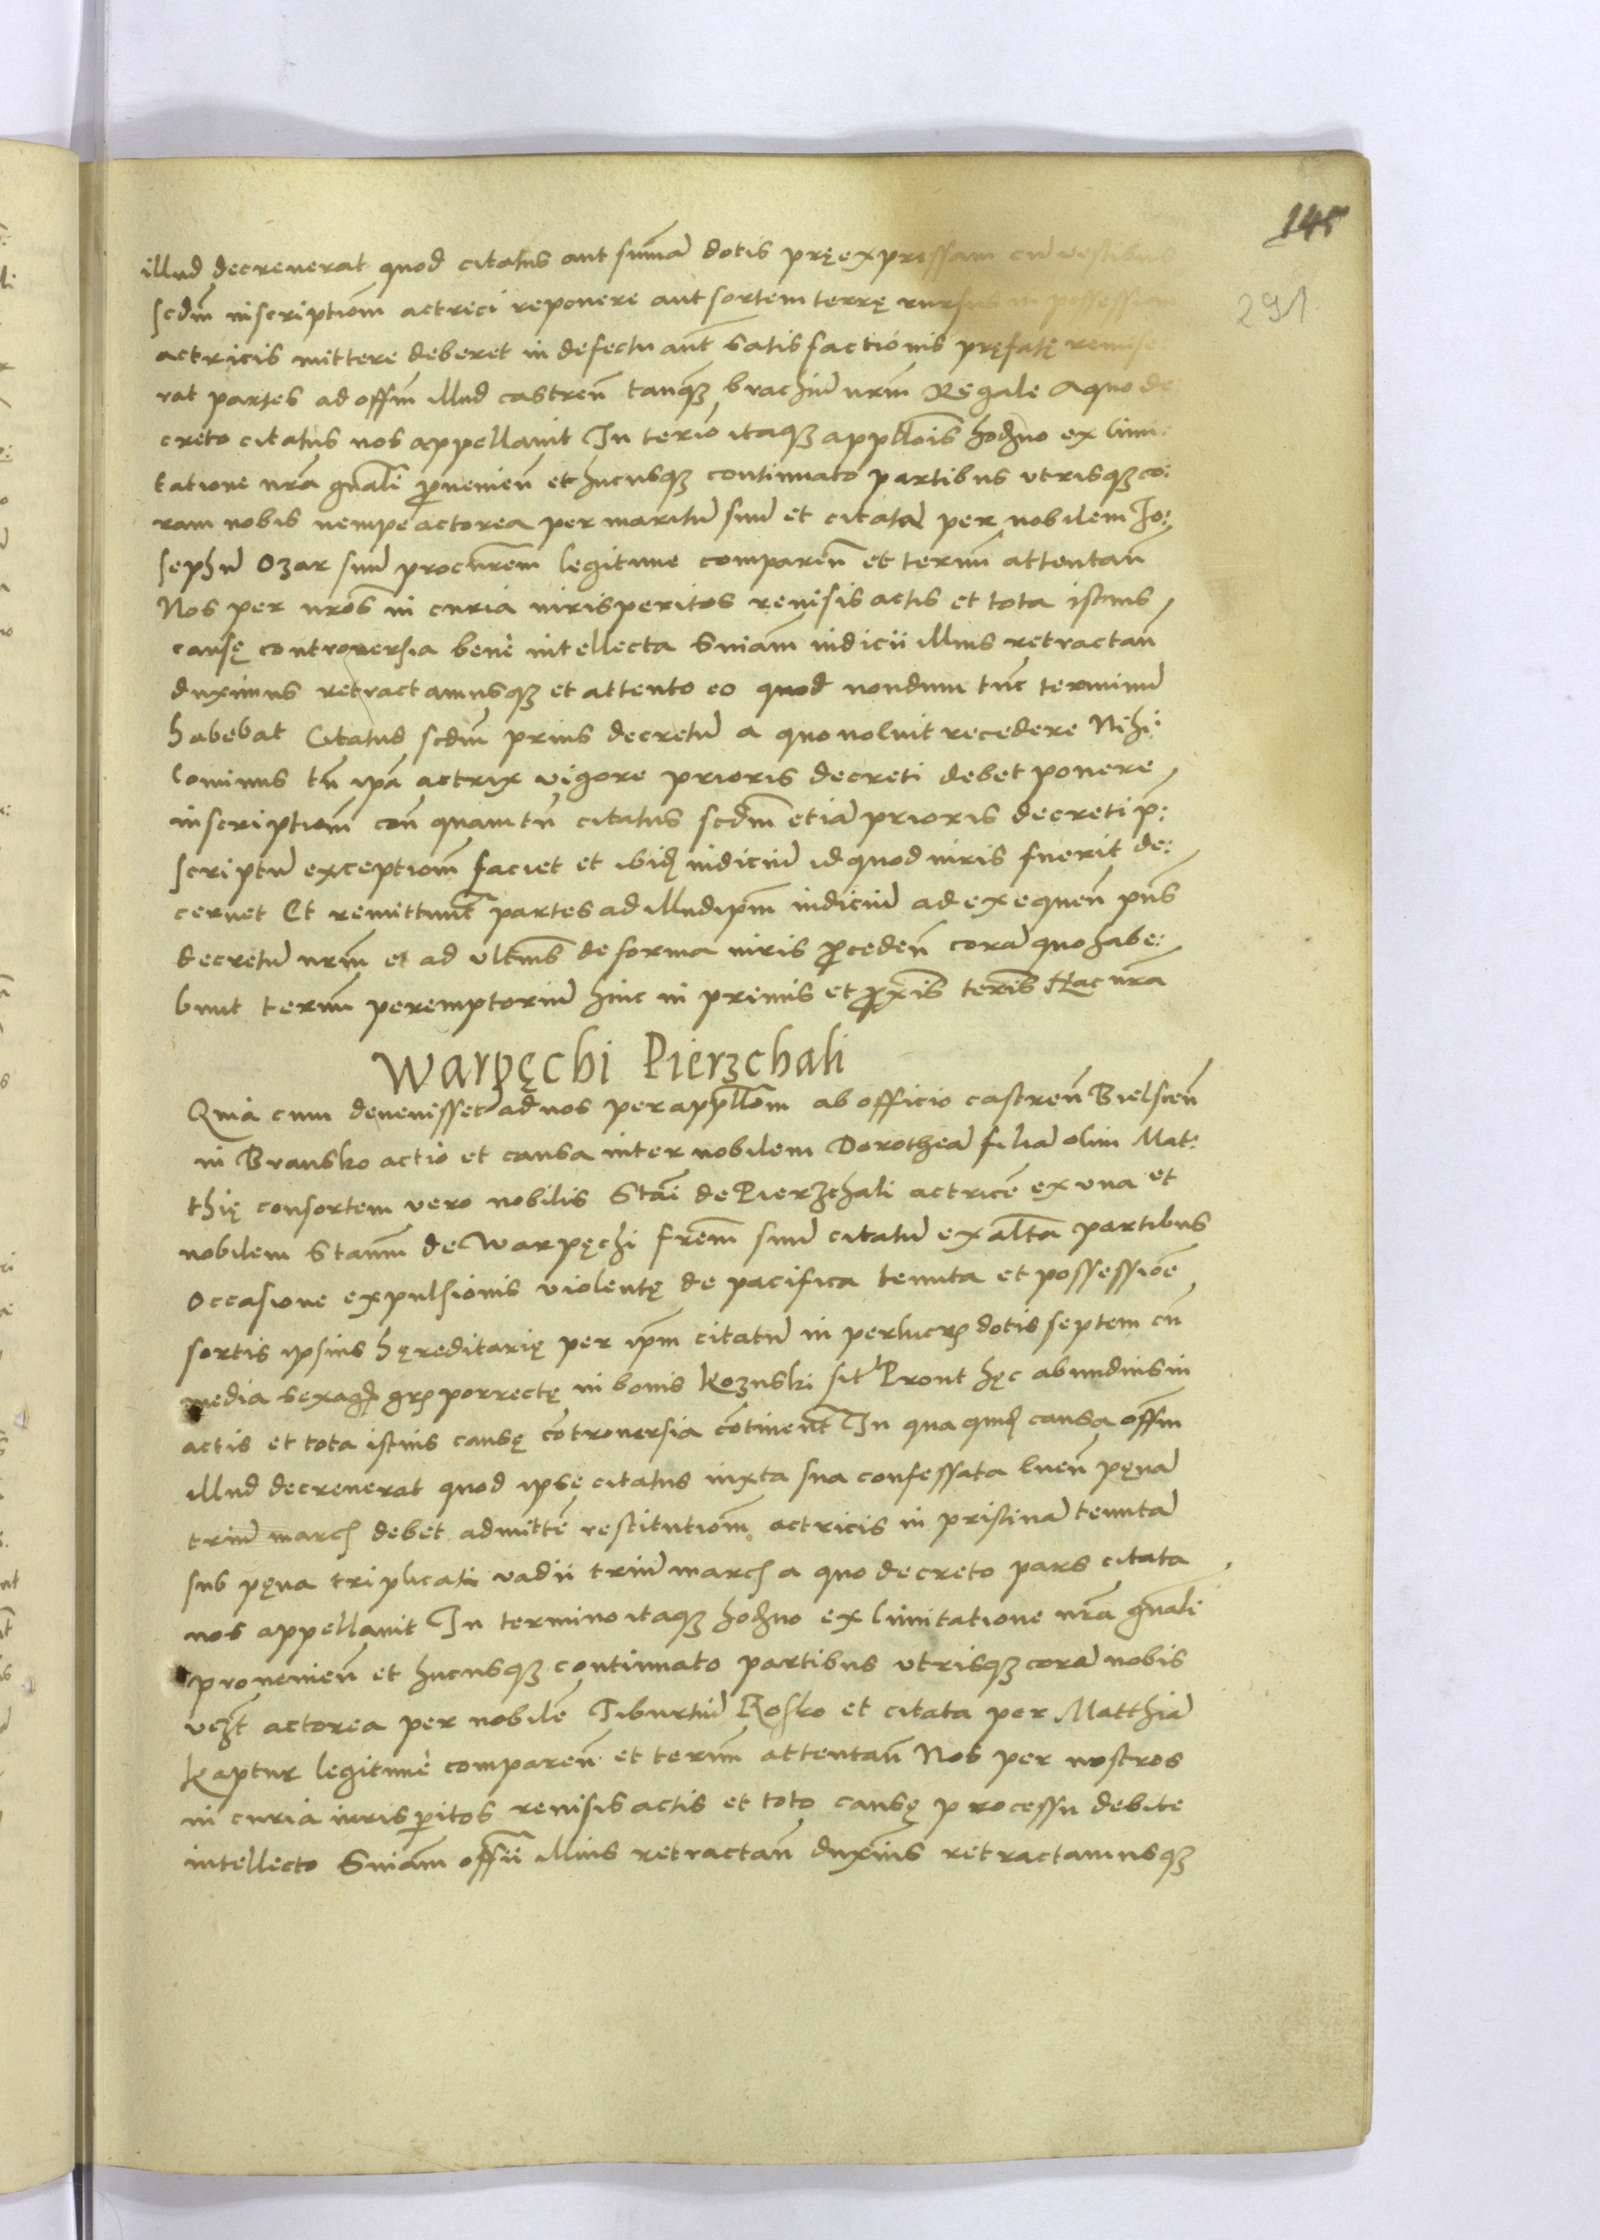 145
291
illud decreverat quod citatus aut sum̃ã dotis pręexpressam cũ vestibus
scdm̃ inscriptiom̃ actrici reponere aut sortem terrę rursus in possessiom̃
actricis mittere deberet in defectu aut̃ satisfactionis pręfatę remise
rat partes ad offm̃ illud castreñ tanq̃ȝ brachiũ nrm̃ Regale A quo de
creto citatus nos appellavit In terĩo itaqȝ appellõis hodierno ex limi:
tatione nrã gñali provenieñ et hucusqȝ continuato partibus utrisqȝ co:
ram nobis nempe actorea per maritũ suũ et citatã per nobilem Jo:
sephũ Ozar suũ procurem̃ legitime compareñ et termĩ attentañ
Nos per nros̃ in curia iurisperitos revisis actis et tota istius
causę controversia bene intellecta Sniam̃ iudicii illius retractañ
duximus retractamusqȝ et attento eo quod nondum tũc terminũ
habebat Citatus scdm̃ prius decretũ a quo noluit recedere Nihi:
lominus tñ ipã actrix vigore prioris decreti debet ponere
inscriptiom̃ coñ quam tñ citatus scdm̃ etiã prioris decreti p̃:
scriptũ exceptiom̃ faciet et ibid iudiciũ id quod iuris fuerit de:
cernet Et remittunt̃ partes ad illud ipm̃ iudiciũ ad exequeñ pñs
decretũ nrm̃ et ad ulterius̃ de forma iuris procedeñ corã quo habe:
bunt termĩ peremptoriũ hinc in primis et proxĩs terĩs Hac nrã
Warpęchi Pierzchali
Quia cum devenisset ad nos per appellom̃ ab officio castreñ Bielsceñ
in Bransko actio et causa inter nobilem Dorotheã filiã olim Mat:
thię consortem vero nobilis Stai de Pierzchali actricẽ ex una et
nobilem Stanm̃ de Warpęchi frem̃ suũ citatũ ex altã partibus
Occasione expulsionis violentę de pacifica tenuta et possessiõe
sortis ipsius hęreditarię per ipm̃ citatũ in perlucr dotis septem cũ
media sexag gr porrectę in bonis Kozuski sit Prout hęc abundius in
actis et tota istius causę cõtroversia cõtinent̃ In qua quid causa offm̃
illud decreverat quod ipse citatus iuxta sua confessata lueñ pęnã
triũ march debet admittẽ restitutiom̃ actricis in pristinã tenutã
sub pęna triplicati vadii triũ march a quo decreto pars citata
nos appellavit In termino itaqȝ hodierno ex limitatione nrã gñali
provenieñ et hucusqȝ continuato partibus utrisqȝ corã nobis
vcȝt actorea per nobilẽ Tiburtiũ Rosko et citata per Matthiã
Kaptur legitime compareñ et termĩ attentañ Nos per nostros
in curia iurisperitos revisis actis et toto causę processu debite
intellecto Sniam̃ offii illius retractañ duxim̃s retractamusqȝ